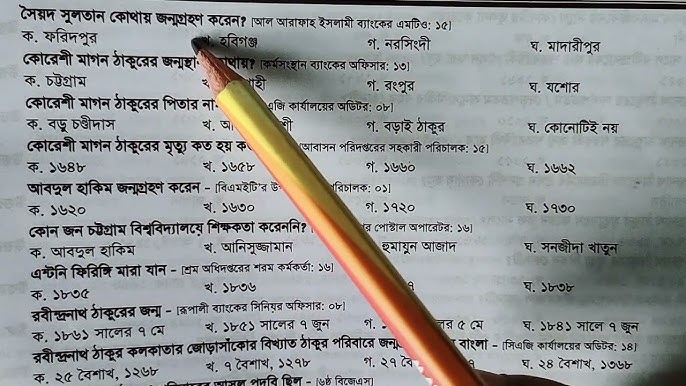 সৈয়দ সুলতান কোথায় জন্মগ্রহণ করেন? [আল আরাফাহ ইসলামী ব্যাংকের এমটিও: ১৫]
ক. ফরিদপুর খ. হবিগঞ্জ গ. নরসিংদী ঘ. মাদারীপুর
কোরেশী মাগন ঠাকুরের জন্মস্থান কোথায়? [কর্মসংস্থান ব্যাংকের অফিসার: ১৩]
ক. চট্টগ্রাম গ. রংপুর ঘ. যশোর
কোরেশী মাগন ঠাকুরের পিতার কার্যালয়ের অডিটর: ০৮]
ক. বড়ু চণ্ডীদাস খ. গ. বড়াই ঠাকুর ঘ. কোনোটিই নয়
কোরেশী মাগন ঠাকুরের মৃত্যু কত হয় [আবাসন পরিদপ্তরের সহকারী পরিচালক: ১৫]
ক. ১৬৪৮ খ. ১৬৫৮ গ. ১৬৬০ ঘ. ১৬৬২
আবদুল হাকিম জন্মগ্রহণ করেন – [বিএমইটি'র পরিচালক: ০১]
ক. ১৬২০ খ. ১৬৩০ গ. ১৭২০ ঘ. ১৭৩০
কোন জন চট্টগ্রাম বিশ্ববিদ্যালয়ে শিক্ষকতা করেননি? পোস্টাল অপারেটর: ১৬]
ক. আবদুল হাকিম খ. আনিসুজ্জামান হুমায়ুন আজাদ ঘ. সনজীদা খাতুন
এন্টনি ফিরিঙ্গি মারা যান – [শ্রম অধিদপ্তরের শ্রম কর্মকর্তা: ১৬]
ক. ১৮৩৫ খ. ১৮৩৬ ৭ ঘ. ১৮৩৮
রবীন্দ্রনাথ ঠাকুরের জন্ম – [রূপালী ব্যাংকের সিনিয়র অফিসার: ০৮]
ক. ১৮৬১ সালের ৭ মে খ. ১৮৫১ সালের ৭ জুন গ. ৫ মে ঘ. ১৮৪১ সালে ৭ জুন
রবীন্দ্রনাথ ঠাকুর কলকাতার জোড়াসাঁকোর বিখ্যাত ঠাকুর পরিবারে বাংলা – [সিএজি কার্যালয়ের অডিটর: ১৪]
ক. ২৫ বৈশাখ, ১২৬৮ খ. ৭ বৈশাখ, ১২৭৮ গ. ২৭ ঘ. ২৪ বৈশাখ, ১৩৬৮
পদবি ছিল – [৬ষ্ঠ বিজেএস]